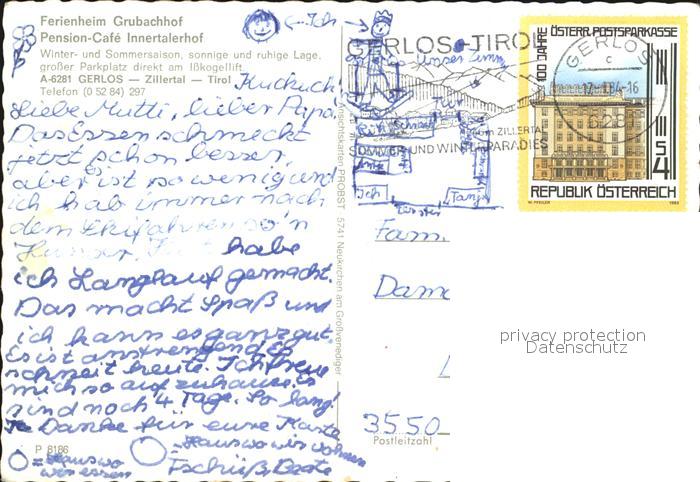 Ferienheim Grubachhof
Pension-Café Innertalerhof
Winter- und Sommersaison, sonnige und ruhige Lage,
großer Parkplatz direkt am Ißkogellift
A-6281 GERLOS — Zillertal — Tirol
Telefon (0 52 84) 297
<-Ich
Kuckuck!
Liebe Mutti, lieber Papa!
Das Essen schmeckt
jetzt schon besser,
aber ist so wenig und
ich hab immer nach
dem Skifahren so'n
Hunger. habe
ich Langlauf gemacht.
Das macht Spaß und
ich kann es ganz gut.
Es ist anstrengend. Es
schneit heute. Ich freue
mich so auf zuhause. Es
sind noch 4 Tage. So lang!
Danke für eure Karte
= Haus wo wir wohnen
= Haus wo
wir essen
Tschüß, Beate
P 8186
Ansichtskarten PROBST 5741 Neukirchen am Großvenediger
GERLOS-TIROL
Unser
Tür
Schrank
IM ZILLERTAL
SOMMER-UND WINTERPARADIES
Ich
Tanja
Fenster
GERLOS
c
84-16
6281
100 JAHRE ÖSTERR. POSTSPARKASSE
S 4
REPUBLIK ÖSTERREICH
W. PFEILER 1983
Fam.
Dame
3550
Postleitzahl
privacy protection
Datenschutz